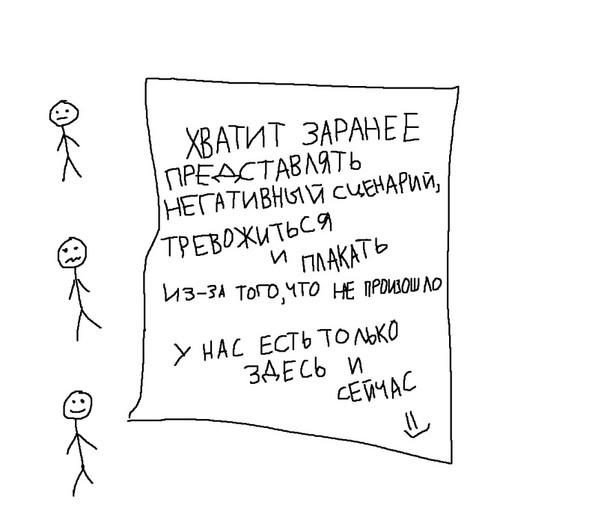 ХВАТИТ ЗАРАНЕЕ
ПРЕДСТАВЛЯТЬ
НЕГАТИВНЫЙ СЦЕНАРИЙ,
ТРЕВОЖИТЬСЯ
И
ПЛАКАТЬ
ИЗ-ЗА ТОГО, ЧТО НЕ ПРОИЗОШЛО
У НАС ЕСТЬ ТОЛЬКО
ЗДЕСЬ И
СЕЙЧАС